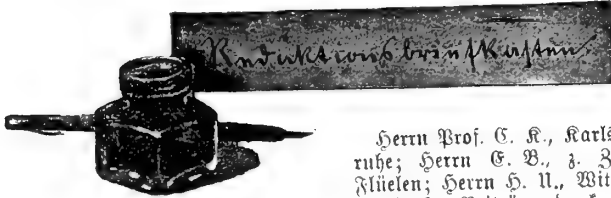 Redaktionsbriefkasten.
Herrn Prof. C. K., Karls
ruhe; Herrn E. B., z. Z
Flüelen; Herrn H. U., Wit